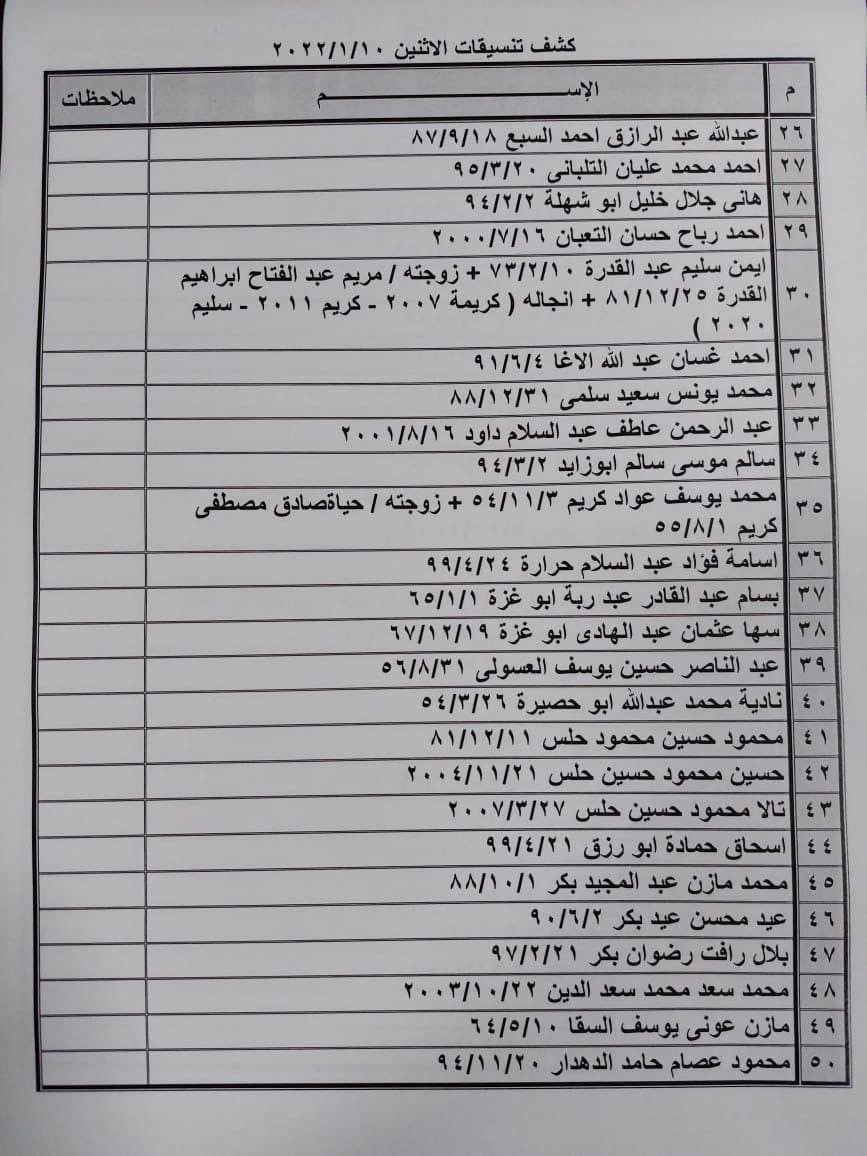 كشف تنسيقات الاثنين ٢٠٢٢/١/١٠
م الإســـــــــــــم ملاحظات
٢٦ عبدالله عبد الرازق احمد السبع ٨٧/٩/١٨
٢٧ احمد محمد عليان التلبانى ٩٥/٣/٢٠
٢٨ هانى جلال خليل ابو شهلة ٩٤/٢/٢
٢٩ احمد رباح حسان التعبان ٢٠٠٠/٧/١٦
٣٠ ايمن سليم عبد القدرة ٧٣/٢/١٠ + زوجته / مريم عبد الفتاح ابراهيم
القدرة ٨١/١٢/٢٥ + انجاله ( كريمة ٢٠٠٧ - كريم ٢٠١١ - سليم
٢٠٢٠ )
٣١ احمد غسان عبد الله الاغا ٩١/٦/٤
٣٢ محمد يونس سعيد سلمى ٨٨/١٢/٣١
٣٣ عبد الرحمن عاطف عبد السلام داود ٢٠٠١/٨/١٦
٣٤ سالم موسى سالم ابوزايد ٩٤/٣/٢
٣٥ محمد يوسف عواد كريم ٥٤/١١/٣ + زوجته / حياةصادق مصطفى
كريم ٥٥/٨/١
٣٦ اسامة فؤاد عبد السلام حرارة ٩٩/٤/٢٤
٣٧ بسام عبد القادر عبد ربة ابو غزة ٦٥/١/١
٣٨ سها عثمان عبد الهادى ابو غزة ٦٧/١٢/١٩
٣٩ عبد الناصر حسين يوسف العسولى ٥٦/٨/٣١
٤٠ نادية محمد عبدالله ابو حصيرة ٥٤/٣/٢٦
٤١ محمود حسين محمود حلس ٨١/١٢/١١
٤٢ حسين محمود حسين حلس ٢٠٠٤/١١/٢١
٤٣ تالا محمود حسين حلس ٢٠٠٧/٣/٢٧
٤٤ اسحاق حمادة ابو رزق ٩٩/٤/٢١
٤٥ محمد مازن عبد المجيد بكر ٨٨/١٠/١
٤٦ عيد محسن عيد بكر ٩٠/٦/٢
٤٧ بلال رافت رضوان بكر ٩٧/٢/٢١
٤٨ محمد سعد محمد سعد الدين ٢٠٠٣/١٠/٢٢
٤٩ مازن عونى يوسف السقا ٦٤/٥/١٠
٥٠ محمود عصام حامد الدهدار ٩٤/١١/٢٠